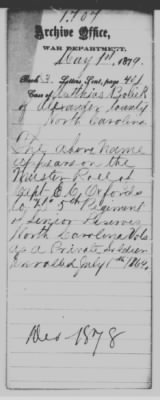 1707
Archive Office,
WAR DEPARTMENT,
May 1st, 1879.
Book 3. Letters Sent, page 401
Case of Matthias Bolick
of Alexander County
North Carolina
The above name
appears on the
Muster Roll of
Capt. E. C. Orfords
Co. 5th Regiment
of Senior Reserves
North Carolina Vols
as a Private Soldier
Enrolled July 1864.
Dec 1878